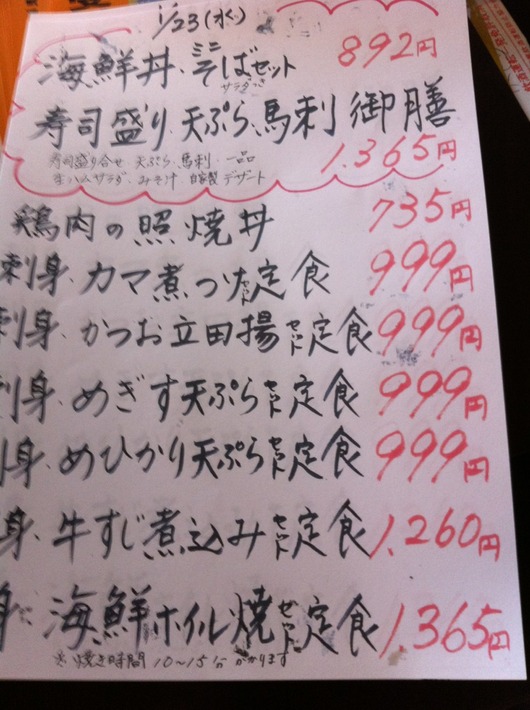 1/23(水)
海鮮丼・ミニそばセット 892円
サラダつき
寿司盛り、天ぷら、馬刺 御膳
1,365円
寿司盛り合せ 天ぷら 馬刺 一品
生ハムサラダ みそ汁 自家製デザート
鶏肉の照焼丼 735円
刺身・カマ煮つけセット定食 999円
刺身・かつお立田揚セット定食 999円
刺身・めぎす天ぷらセット定食 999円
刺身・めひかり天ぷらセット定食 999円
身・牛すじ煮込みセット定食 1,260円
身・海鮮ホイル焼セット定食 1,365円
※焼き時間10～15分かかります